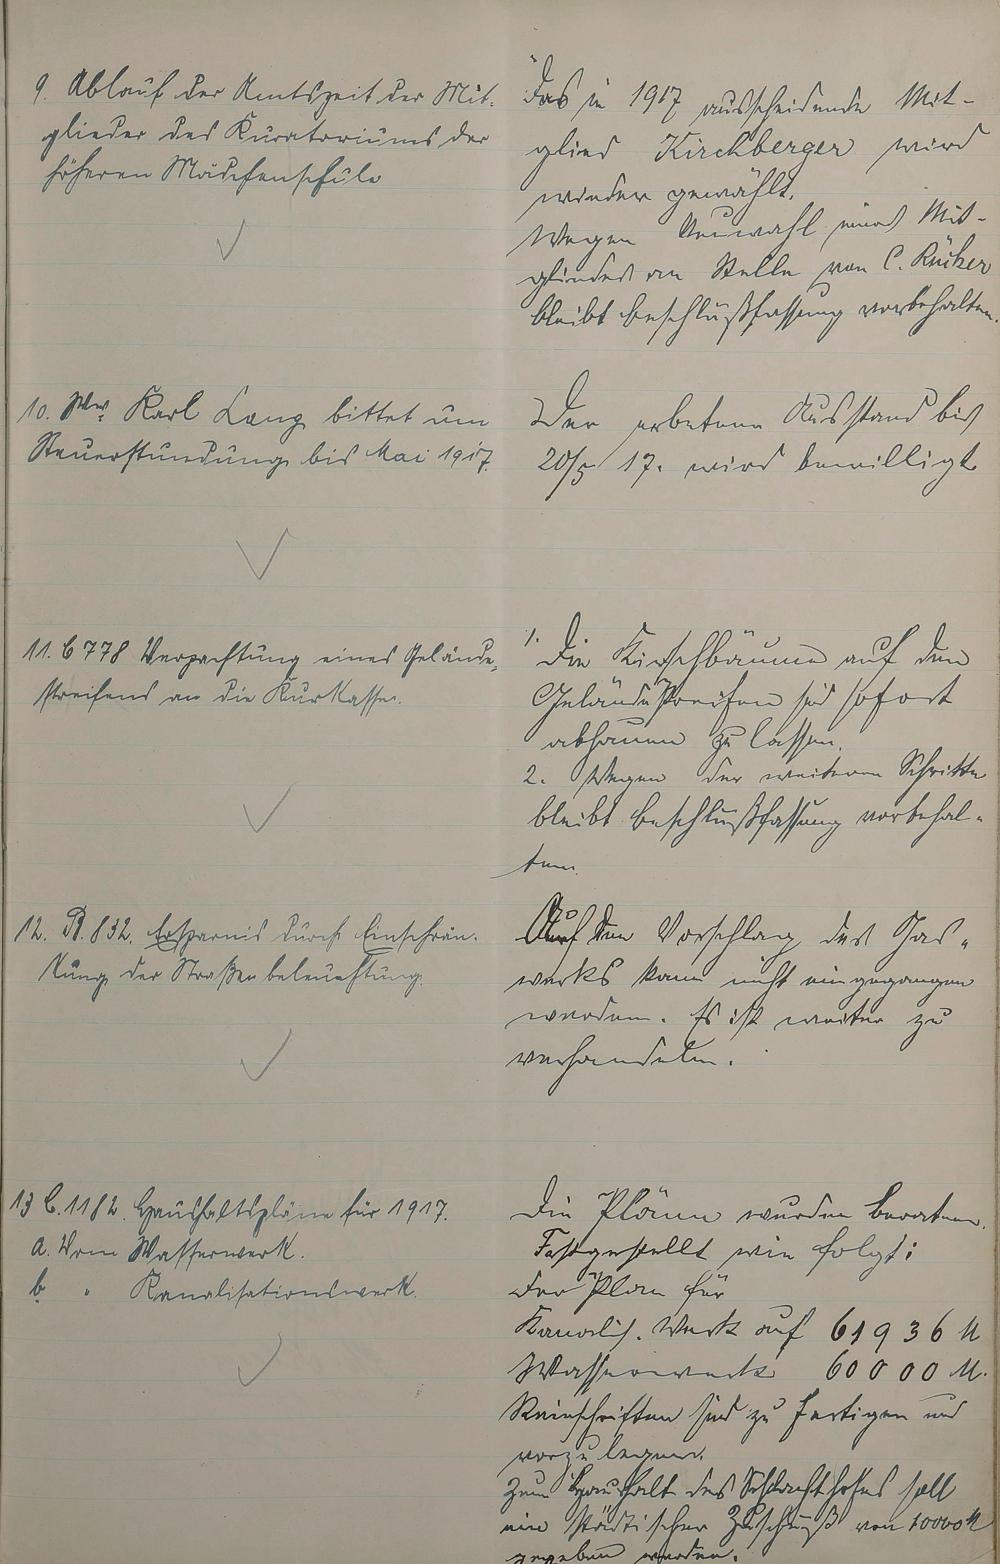 9. Ablauf der Amtszeit der Mit-
glieder des Kuratoriums der
höheren Mädchenschule
Das in 1917 ausscheidende Mit-
glied Kirchberger wird
wieder gewählt.
Wegen Neuwahl eines Mit-
gliedes an Stelle von C. Rücker
bleibt Beschlußfassung vorbehalten.
10. Ww. Karl Lang bittet um
Steuerstundung bis Mai 1917.
Der erbetene Ausstand bis
20/5 17. wird bewilligt
11. C 778 Verpachtung eines Gelände-
streifens an die Kurkasse.
1. Die Kirschbäume auf dem
Geländestreifen sind sofort
abhauen zu lassen.
2. Wegen der weiteren Schritte
bleibt Beschlußfassung vorbehal-
ten.
12. B. 832. Ersparnis durch Einschrän-
kung der Straßenbeleuchtung.
Auf den Vorschlag des Gas-
werks kann nicht eingegangen
werden. Es ist weiter zu
verhandeln.
13 C. 1182. Haushaltspläne für 1917.
a. Vom Wasserwerk.
b. " Kanalisationswerk.
Die Pläne wurden beraten.
Festgestellt wie folgt:
Der Plan für
Kanalis. Werk auf 61936 M
Wasserwerk 60000 M.
Reinschriften sind zu fertigen und
vorzulegen.
Zum Haushalt des Schlachthofes soll
ein städtischer Zuschuß von 10000 M
gegeben werden.